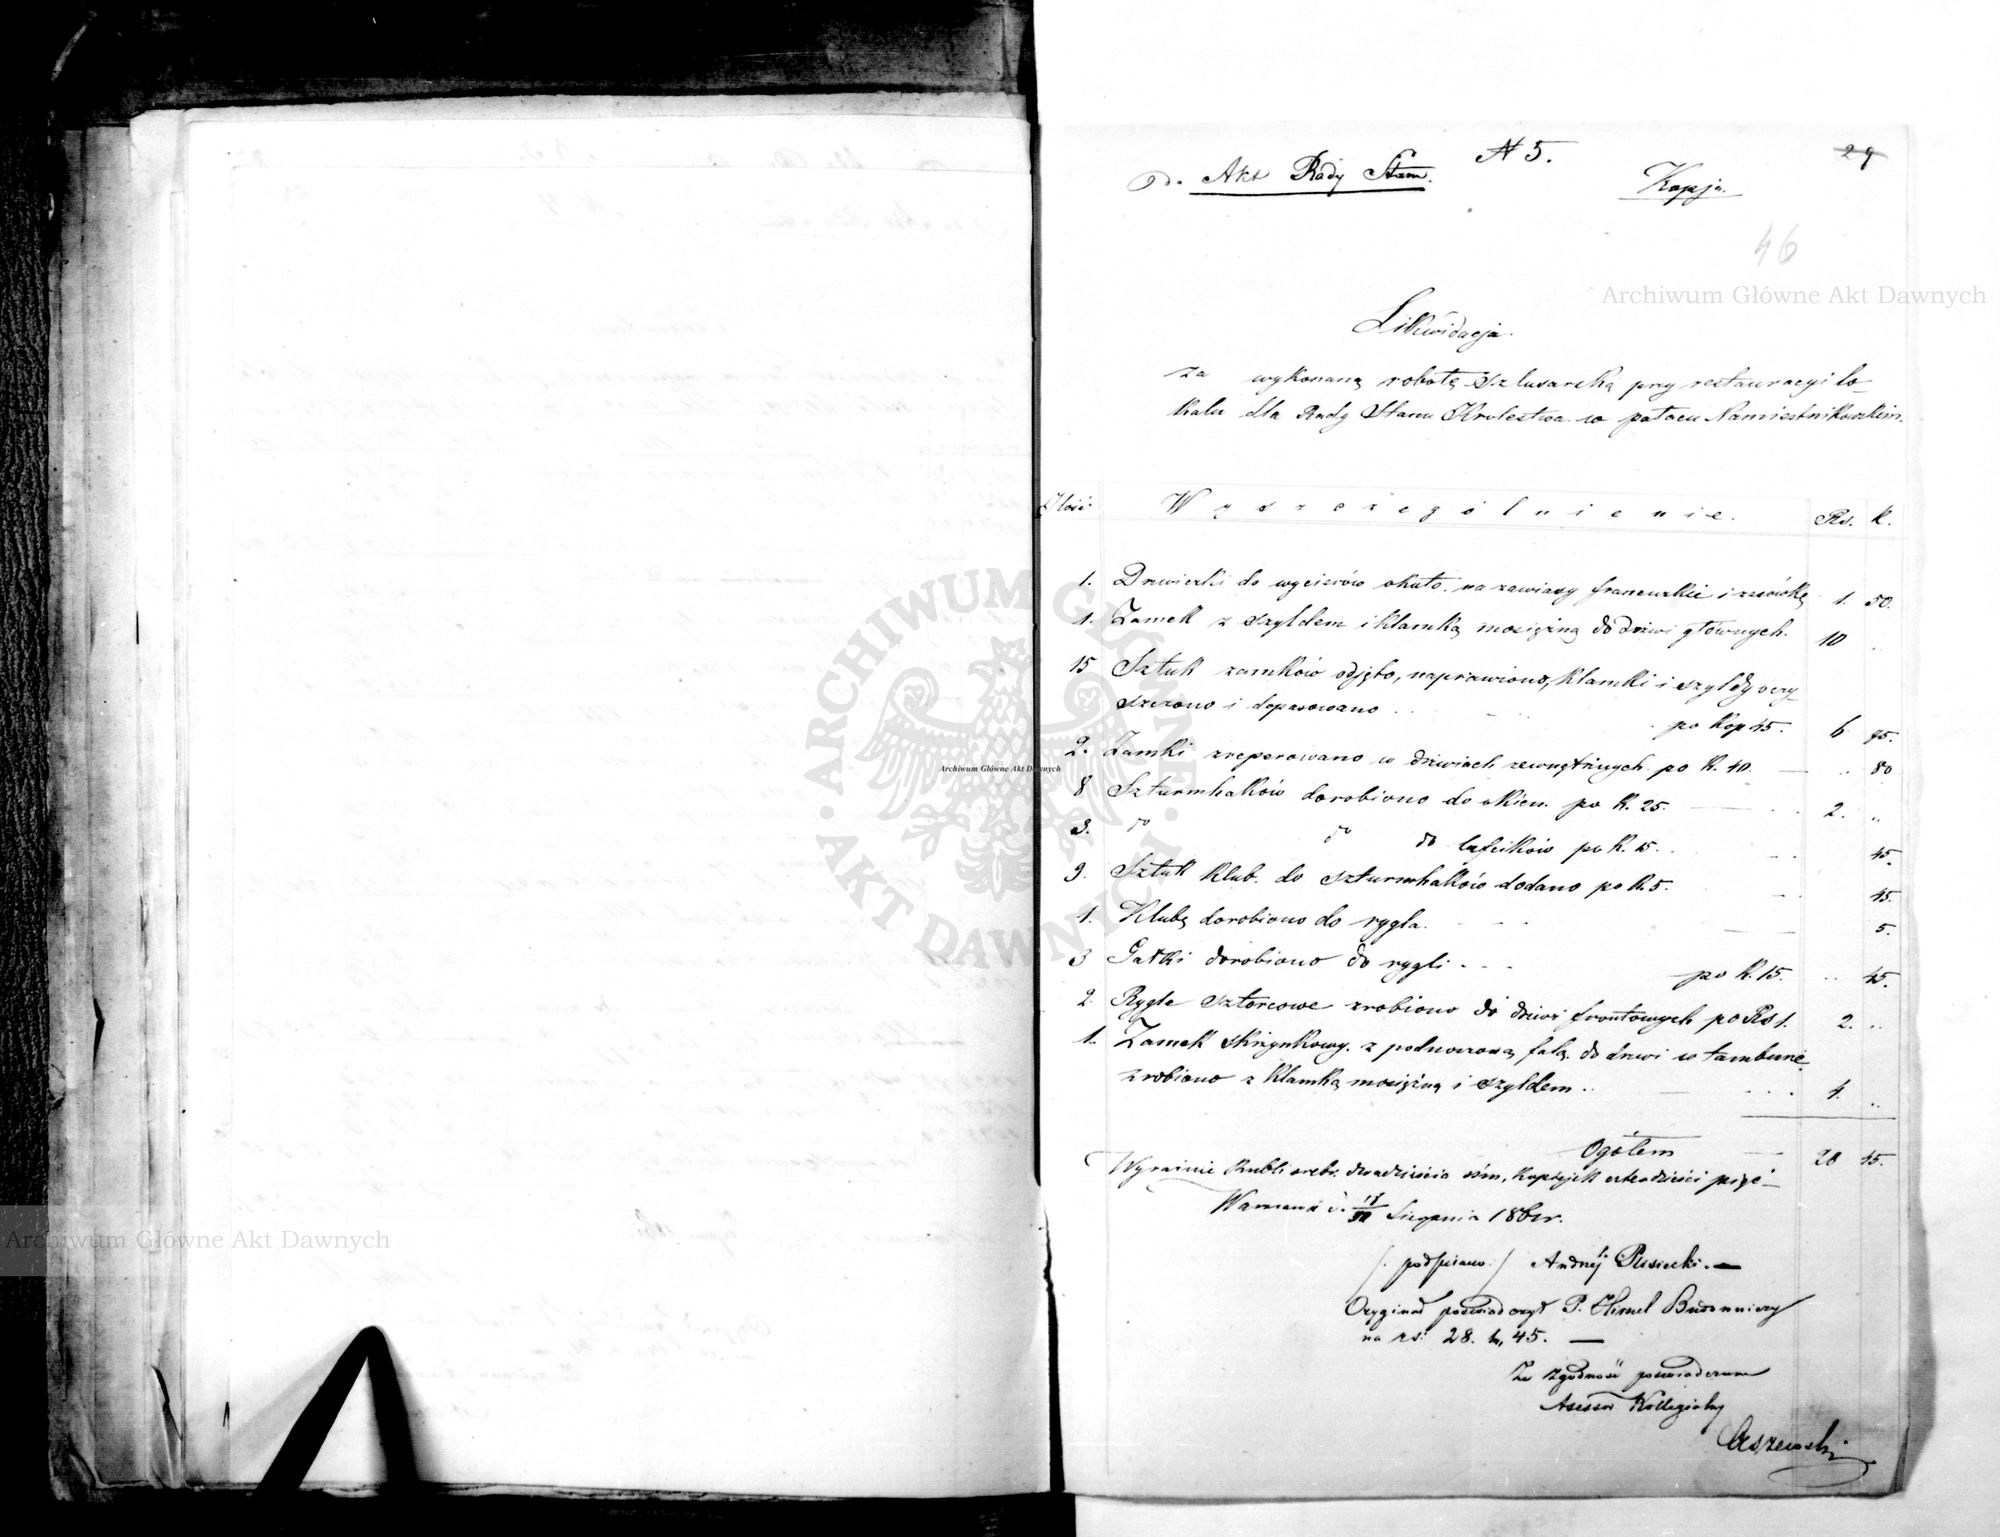 N 5.
29
Do Akt Rady Stanu.
Kopja.
46
Archiwum Główne Akt Dawnych
Likwidacja.
za wykonaną robotę szlusarską przy restauracyi lo-
kalu dla Rady Stanu Królestwa w pałacu Namiestnikowskim.
Ilość Wyszczególnienie. Rs. k.
1. Drzwiczki do wycierów okuto na zawiasy francuzkie i zasówkę 1. 50.
1. Zamek z szyldem i klamką mosiężną do drzwi głównych. 10 .
15 Sztuk zamków odjęto, naprawiono, klamki i szyldy oczy
szczono i dopasowano .. po kop 45. 6 75.
2. Zamki zreperowano w drzwiach zewnętrznych po k. 40. — .. 80
8 Szturmhaków dorobiono do okien po k. 25. 2. ..
3. do do do lufcików po k. 15. 45.
9. Sztuk klub. do szturmhaków dodano po k. 5. 45.
1. Klubę dorobiono do rygla. 5.
3 Gałki dorobiono do rygli - - - po k. 15. .. 45.
2. Rygle sztorcowe zrobiono do drzwi frontowych po Rs 1. 2. ..
1. Zamek skrzynkowy z podwozową falą do drzwi w tamburie
zrobiono z klamką mosiężną i szyldem .. 4. ..
Ogółem 28 45.
Wyraźnie Rubli srebr. dwadzieścia ośm, kopiejek czterdzieści pięć
Warszawa d. Sierpnia 1861 r.
/. podpisano ./ Andrzej Piasiecki. —
Oryginał poświadczył P. Himel Budowniczy
na rs. 28. k. 45. —
Za zgodność poświadczam
Asessor Kollegialny
Archiwum Główne Akt Dawnych
ARCHIWUM GŁÓWNE · AKT DAWNYCH ·
Archiwum Główne Akt Dawnych